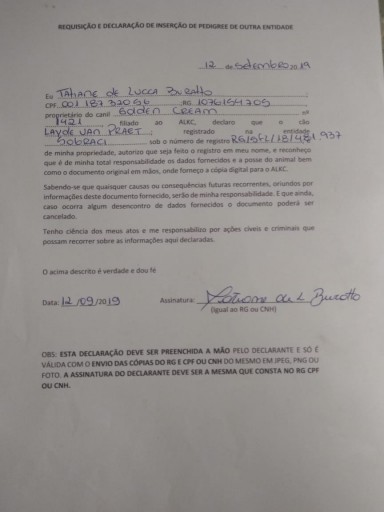 REQUISIÇÃO E DECLARAÇÃO DE INSERÇÃO DE PEDIGREE DE OUTRA ENTIDADE
12 de Setembro 2019
Eu TATIANE de LUCCA BURATTO
CPF 001 187 370 56 RG 1076154705
proprietário do canil Golden CREAM nº
1421, filiado ao ALKC, declaro que o cão
LAYDE VAN PRAET, registrado na entidade
SOBRACI sob o número de registro
de minha propriedade, autorizo que seja feito o registro em meu nome, e reconheço
que é de minha total responsabilidade os dados fornecidos e a posse do animal bem
como o documento original em mãos, onde forneço a cópia digital para o ALKC.
Sabendo-se que quaisquer causas ou consequências futuras recorrentes, oriundos por
informações deste documento fornecido, serão de minha responsabilidade. E que ainda,
caso ocorra algum desencontro de dados fornecidos o documento poderá ser
cancelado.
Tenho ciência dos meus atos e me responsabilizo por ações cíveis e criminais que
possam recorrer as informações aqui declaradas.
O acima descrito é verdade e dou fé
Data: 12/09/2019 Assinatura: Tatiane de L Buratto
(igual ao RG ou CNH)
OBS: ESTA DECLARAÇÃO DEVE SER PREENCHIDA A MÃO PELO DECLARANTE E SÓ É
VÁLIDA COM O ENVIO DAS CÓPIAS DO RG E CPF OU CNH DO MESMO EM JPEG, PNG OU
FOTO. A ASSINATURA DO DECLARANTE DEVE SER A MESMA QUE CONSTA NO RG CPF
OU CNH.